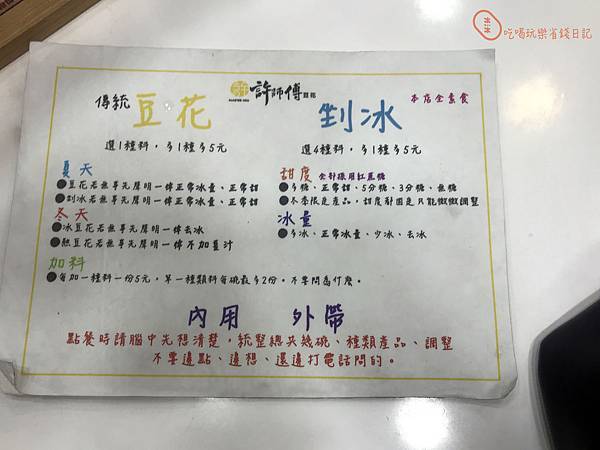 吃喝玩樂省錢日記
許師傅豆花
本店全素食
傳統 豆花 剉冰
選1種料，多1種多5元
選4種料，多1種多5元
夏天
●豆花若無事先聲明一律正常冰量、正常甜
●剉冰若無事先聲明一律正常冰量、正常甜
冬天
●冰豆花若無事先聲明一律去冰
●熱豆花若無事先聲明一律不加薑汁
加料
●每加一種料一份5元，單一種類料每碗最多2份。不要問為什麼。
甜度 全部採用紅蔗糖
●多糖、正常甜、5分糖、3分糖、無糖
●冬季限定產品，甜度耐固定只能微微調整
冰量
●多冰、正常冰量、少冰、去冰
內用 外帶
點餐時請腦中先想清楚，統整總共幾碗、種類產品、調整
不要邊點、邊想、還邊打電話問的。